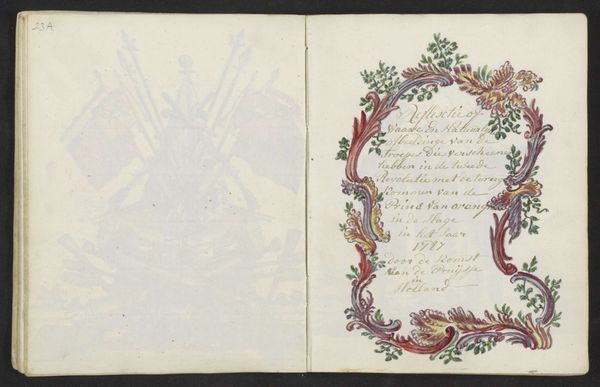 23A
Reflectie of
Waare En Natuurly
afbeeldinge van de
Troepes die verscheene
hebben in de tweede
Revolutie met de terug
kommen van de
Prins van orange
in de Hage
in het Jaar
1787
door de komst
van de Pruijsse
in
Holland